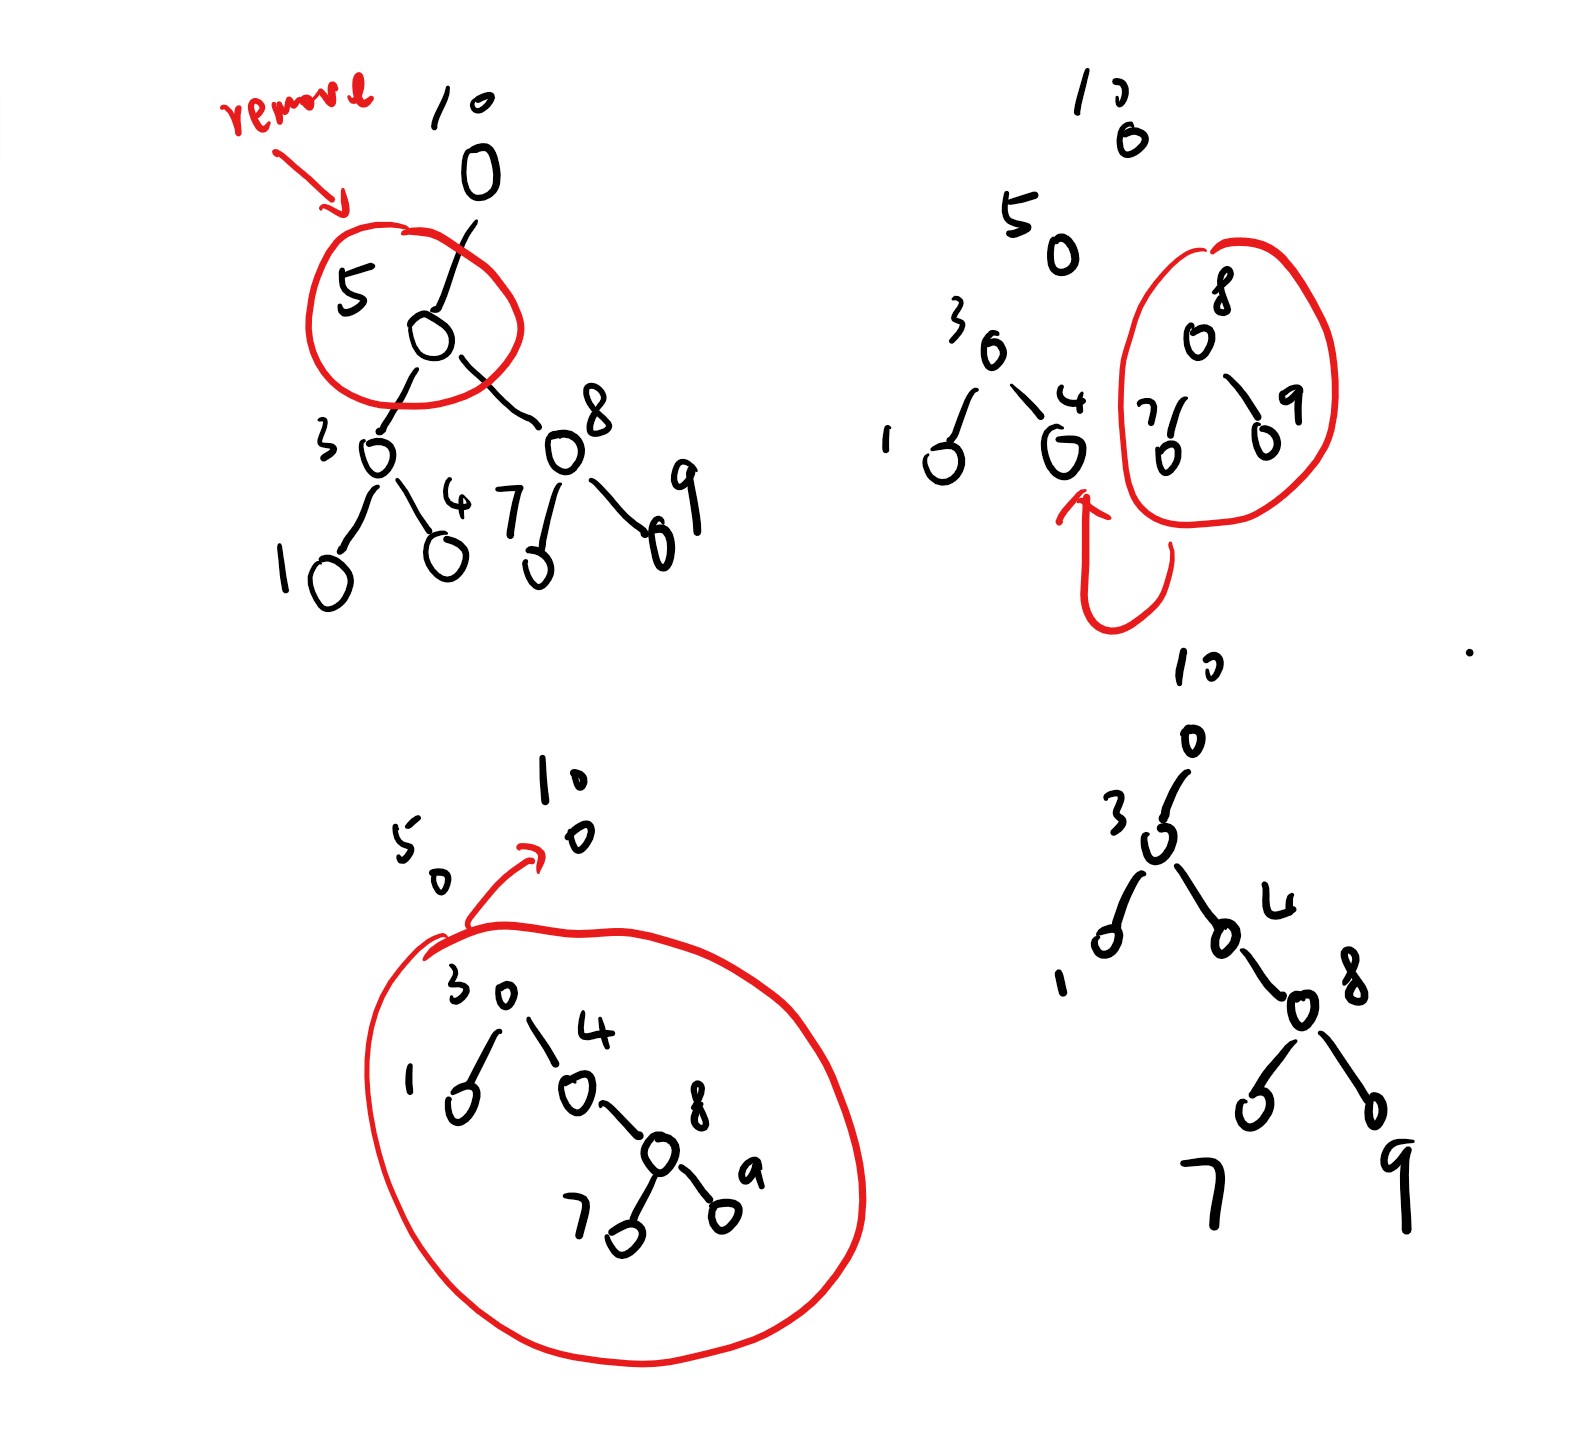 remove
10
5
3
8
1
4
7
9
10
5
3
8
1
4
7
9
5
10
3
1
4
8
7
9
10
3
1
4
8
7
9